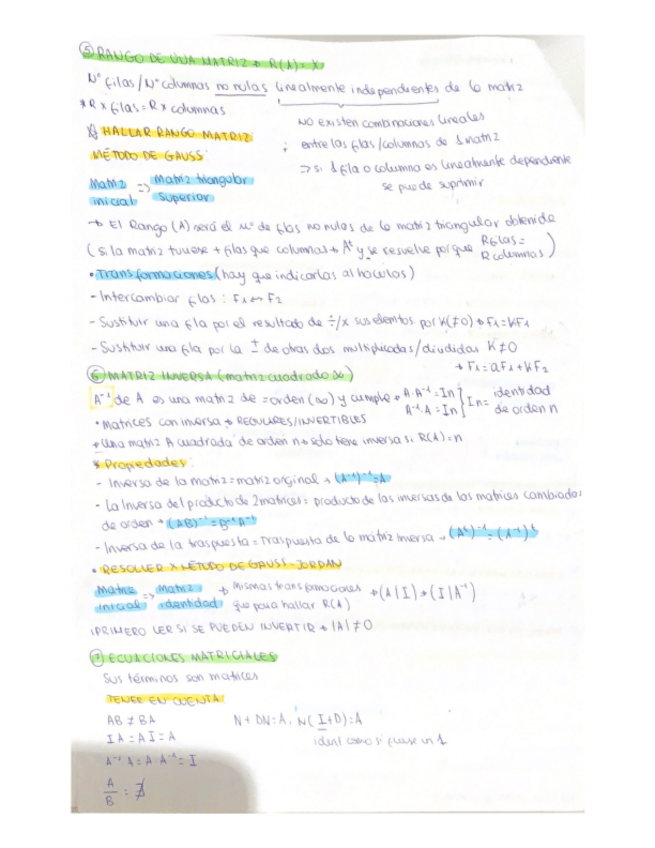 ⑤ RANGO DE UNA MATRIZ → R(A) = X
Nº filas / Nº columnas no nulas linealmente independientes de la matriz
* R x filas = R x columnas
NO existen combinaciones lineales
entre las filas/columnas de 1 matriz
⇒ si 1 fila o columna es linealmente dependiente
se puede suprimir
HALLAR RANGO MATRIZ:
MÉTODO DE GAUSS:
Matriz inicial => Matriz triangular superior
→ El Rango (A) será el nº de filas no nulas de la matriz triangular obtenida
(si la matriz tuviese + filas que columnas → Aᵗ y se resuelve porque R filas = R columnas)
• Transformaciones (hay que indicarlas al hacerlas)
- Intercambiar filas: F₁ ↔ F₂
- Sustituir una fila por el resultado de ÷/x sus elemtos por K(≠0) → F₁ = KF₁
- Sustituir una fila por la ± de otras dos multiplicadas/divididas K ≠ 0
→ F₁ = aF₁ + KF₂
⑥ MATRIZ INVERSA (matriz cuadrada)
A⁻¹ de A es una matriz de = orden (n) y cumple → A·A⁻¹ = In A⁻¹·A = In } In = identidad de orden n
• Matrices con inversa → REGULARES/INVERTIBLES
→ Una matriz A cuadrada de orden n → solo tiene inversa si R(A) = n
* Propiedades:
- Inversa de la matriz = matriz original → (A⁻¹)⁻¹ = A
- La Inversa del producto de 2 matrices = producto de las inversas de las matrices cambiadas
de orden → (AB)⁻¹ = B⁻¹A⁻¹
- Inversa de la traspuesta = Traspuesta de la matriz inversa → (Aᵗ)⁻¹ = (A⁻¹)ᵗ
• RESOLVER X MÉTODO DE GAUSS-JORDAN
Matriz inicial => Matriz identidad → Mismas transformaciones que para hallar R(A) → (A|I) → (I|A⁻¹)
¡PRIMERO VER SI SE PUEDEN INVERTIR → |A| ≠ 0
⑦ ECUACIONES MATRICIALES
Sus términos son matrices
TENER EN CUENTA:
AB ≠ BA
N + DN = A, N(I+D) = A
IA = AI = A
ident como si fuese un 1
A⁻¹ A = A·A⁻¹ = I
A/B = ∄